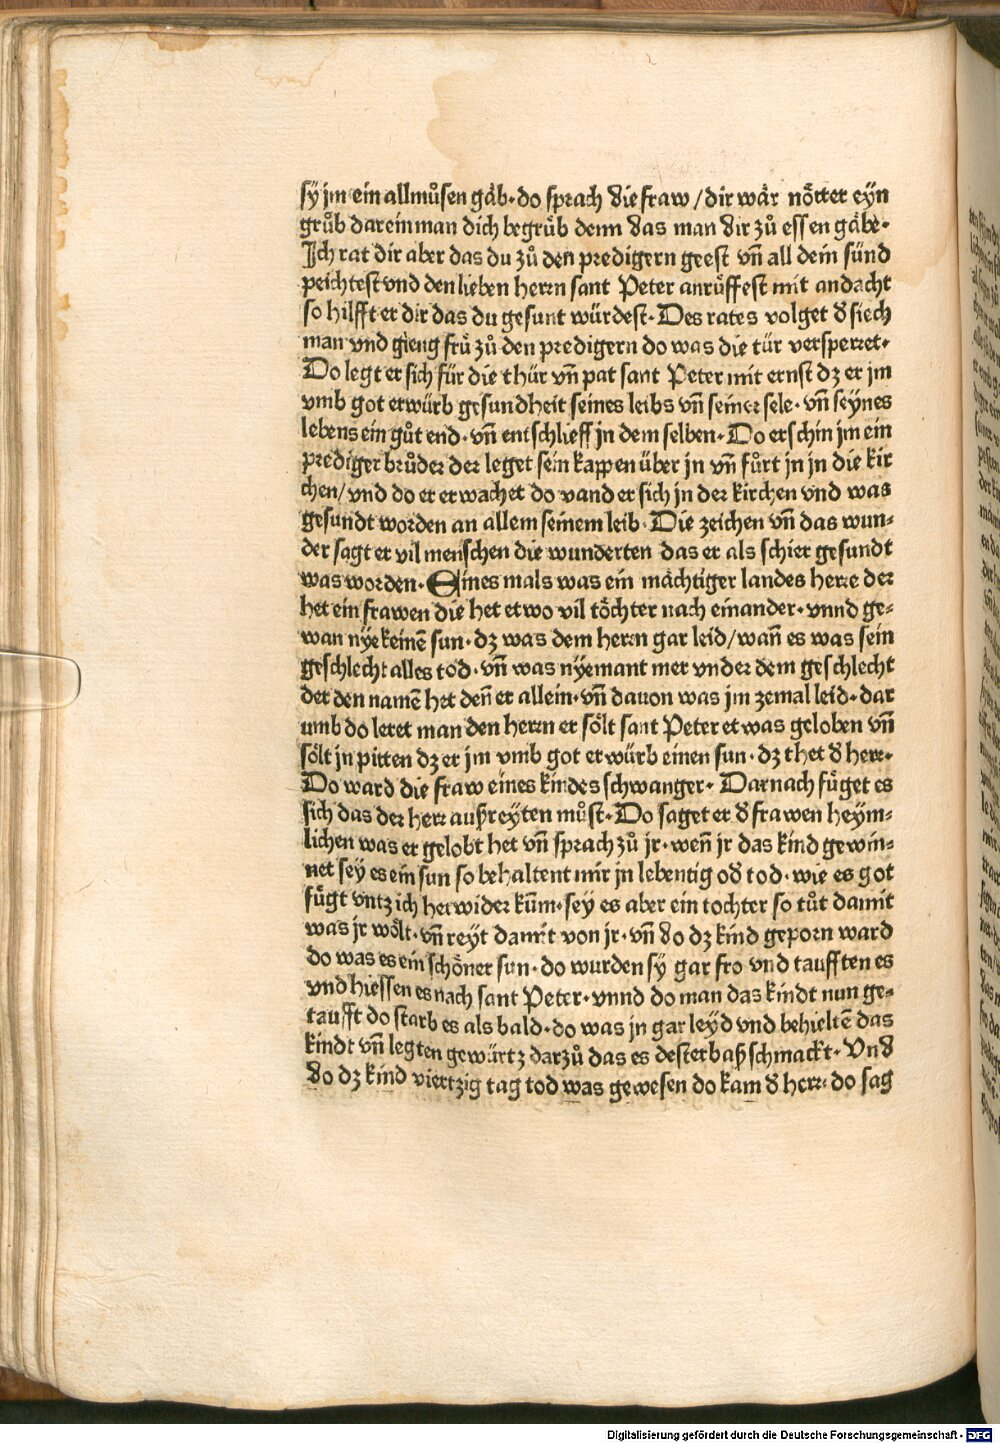 sÿ jm ein allmůsen gäb·do sprach die fraw/dir wär nötter eyn
grůb darein man dich begrůb denn das man dir zů essen gäbe·
Jch rat dir aber das du zů den predigern geest vñ all dein sünd
peichtest vnd den lieben herrn sant Peter anrüffest mit andacht
so hilfft er dir das du gesunt würdest·Des rates volget d̕ siech
man vnd gieng frů zů den predigern do was die tür versperret·
Do legt er sich für die thür vñ pat sant Peter mit ernst dz er jm
vmb got erwürb gesundheit seines leibs vñ seiner sele·vñ seÿnes
lebens ein gůt end·vñ entschlieff in dem selben·Do erschin jm ein
prediger brůder der leget sein kappen über jn vñ fůrt jn in die kir
chen/vnd do er erwachet do vand er sich jn der kirchen vnd was
gesundt worden an allem seinem leib·Die zeichen vñ das wun⸗
der sagt er vil menschen die wunderten das er als schier gesundt
was worden·Eines mals was ein mächtiger landes herre der
het ein frawen die het etwo vil töchter nach einander·vnnd ge⸗
wan nÿe keinē sun·dz was dem herrn gar leid/wañ es was sein
geschlecht alles tod·vñ was nÿemant mer vnder dem geschlecht
der den namē het deñ er allein·vñ dauon was jm zemal leid·dar
umb do leret man den herrn er sölt sant Peter etwas geloben vñ
sölt jn pitten dz er jm vmb got erwürb einen sun·dz thet d̕ herr·
Do ward die fraw eines kindes schwanger·Darnach füget es
sich das der herr außreyten můst·Do saget er d̕ frawen heym⸗
lichen was er gelobt het vñ sprach zů jr·weñ jr das kind gewin⸗
net sey es ein sun so behaltent mir jn lebentig od̕ tod·wie es got
fügt vntz ich herwider kum̄·sey es aber ein tochter so tůt damit
was jr wölt·vñ reyt damit von jr·vñ do dz kind geporn ward
do was es ein schöner sun·do wurden sÿ gar fro vnd taufften es
vnd hiessen es nach sant Peter·vnnd do man das kindt nun ge⸗
taufft do starb es als bald·do was jn gar leÿd vnd behieltē das
kindt vñ legten gewürtz darzů das es desterbaß schmackt·Vnd
do dz kind viertzig tag tod was gewesen do kam d̕ herr·do sag
Digitalisierung gefördert durch die Deutsche Forschungsgemeinschaft - DFG